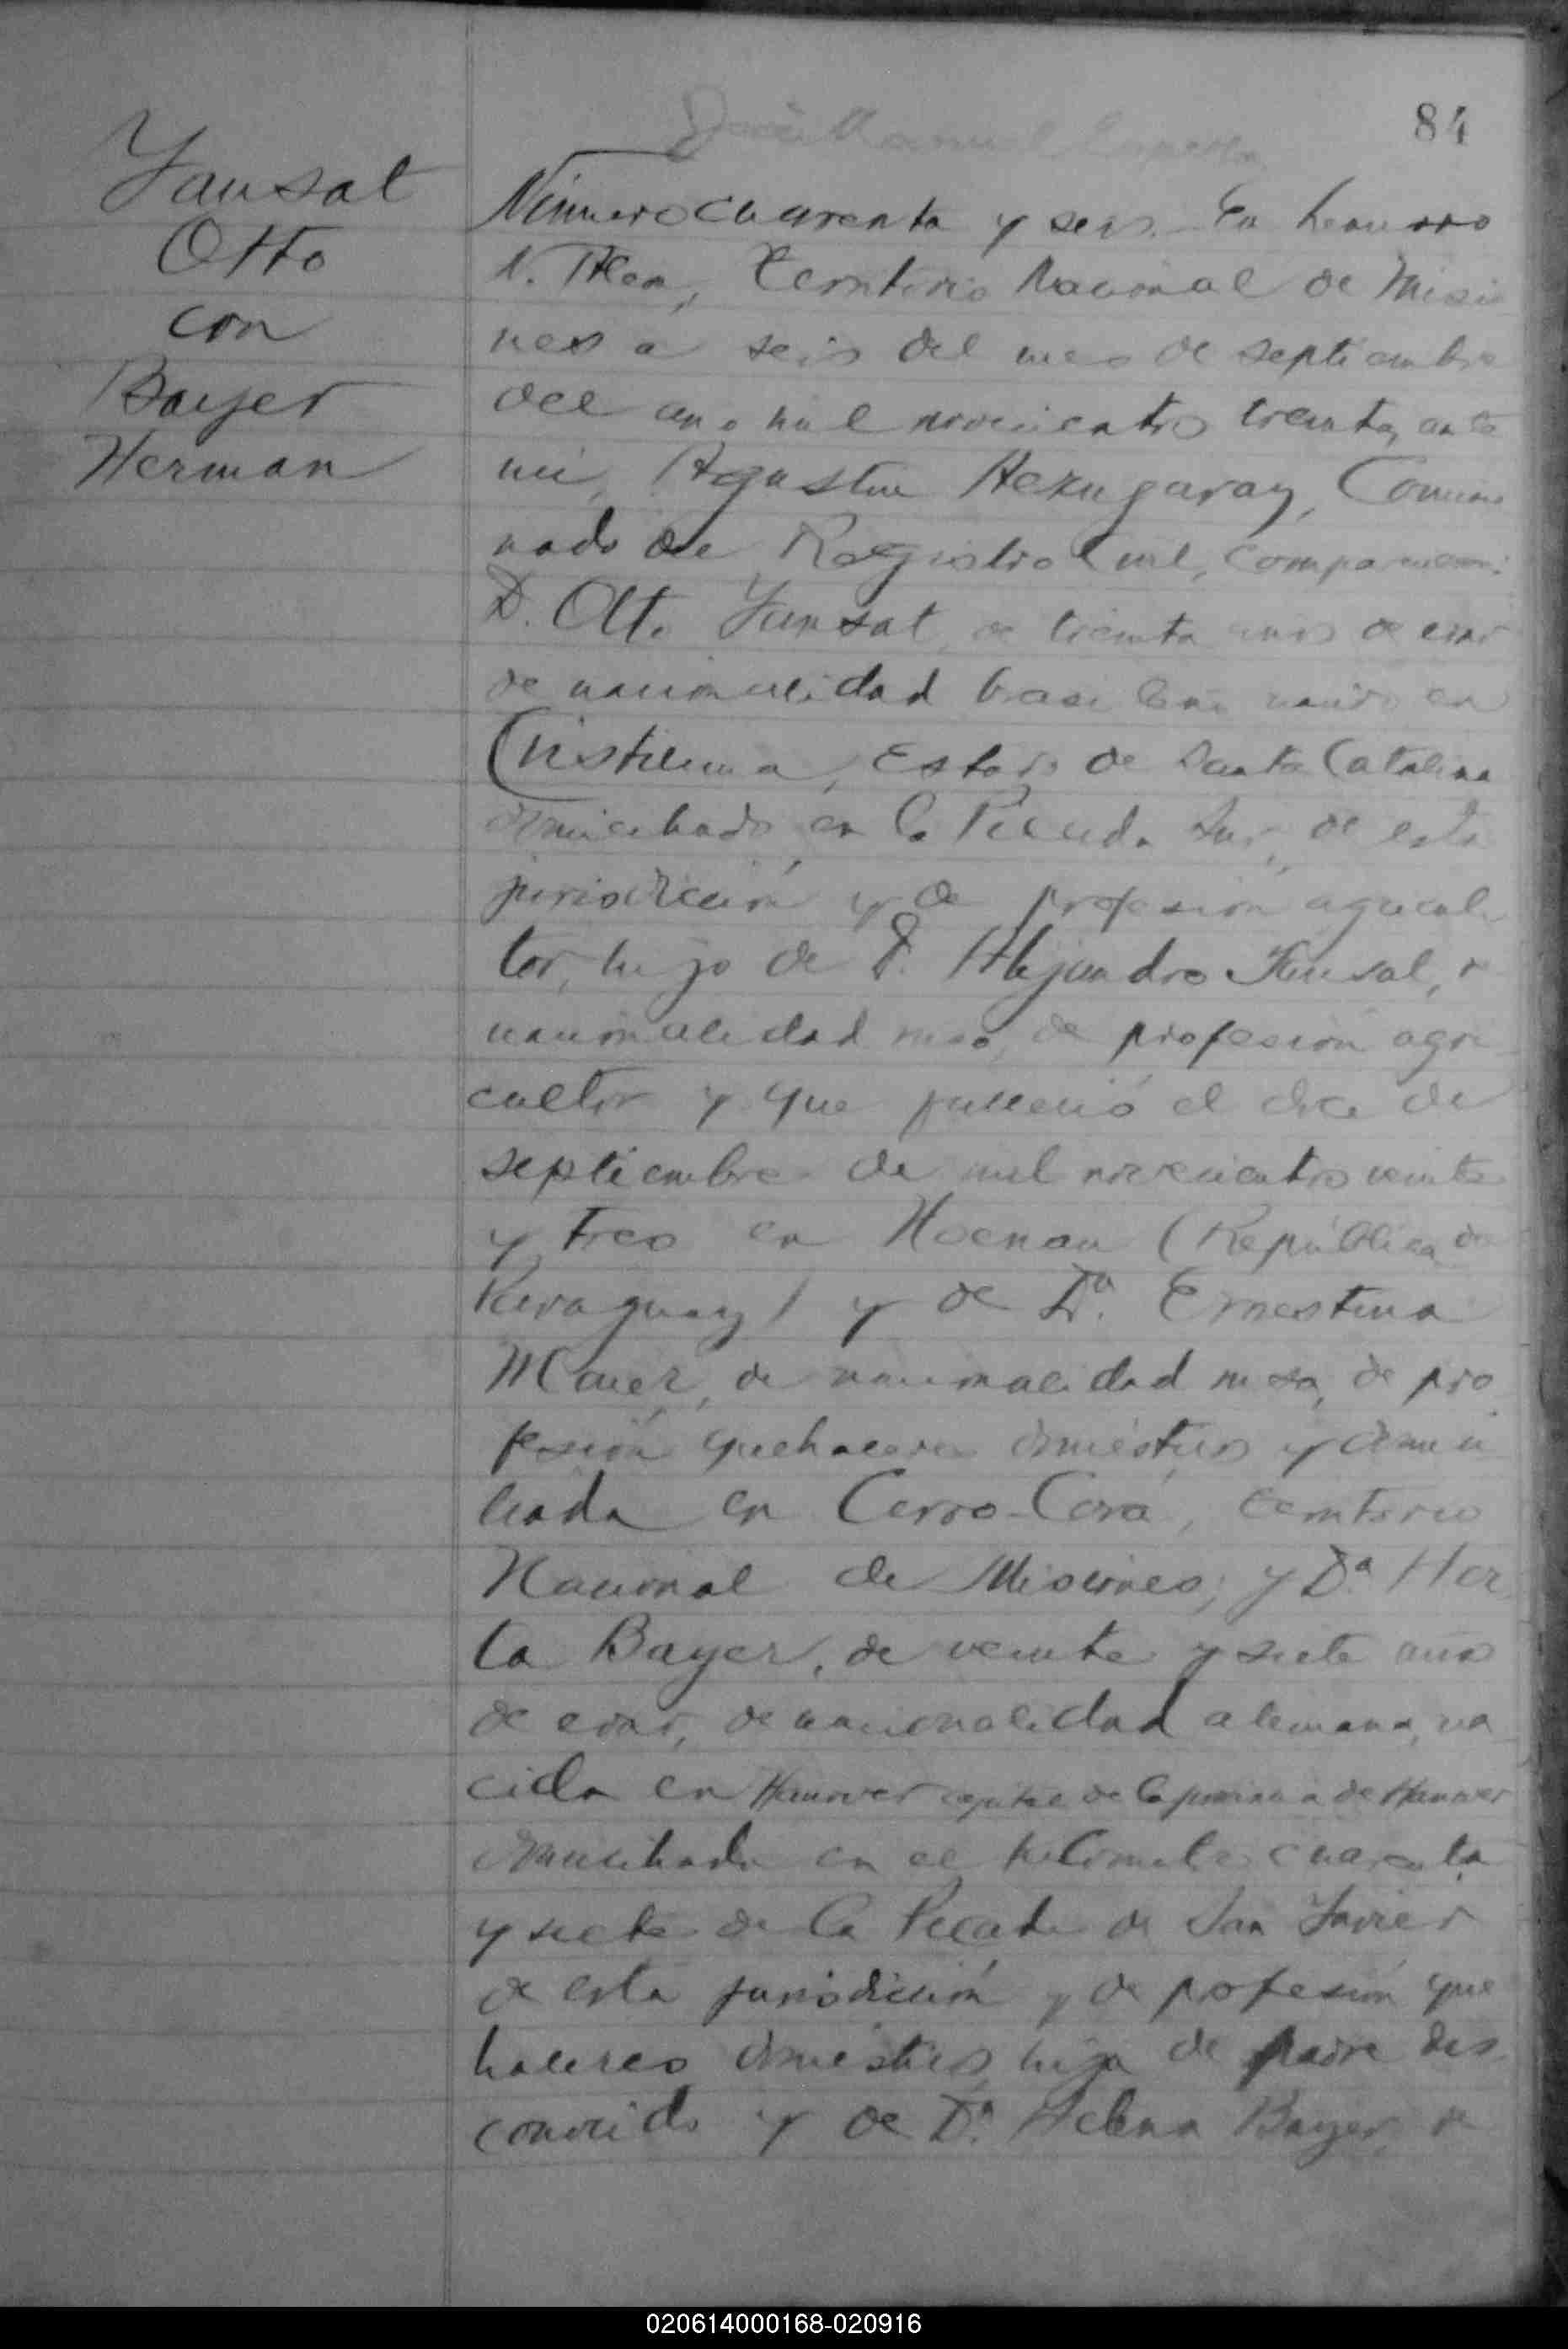 84
Jansat
Otto
con
Bayer
Herman
Número cuarenta y seis. En Leandro
N. Alen, Territorio Nacional de Misio
nes a seis del mes de septiembre
del año mil novecientos treinta, ante
mi, Agustin Aezugaray, Comisio
nado de Registro Civil, comparecen:
D. Otto Jansat, de treinta años de edad
de nacionalidad brasileña nacido en
Cristiuma, Estado de Santa Catalina
domiciliado en la Picada Sur, de esta
jurisdicción y de profesión agricul
tor, hijo de D. Alejandro Jansat, de
nacionalidad ruso, de profesión agri
cultor y que falleció el doce de
septiembre de mil novecientos veinte
y tres en Hoenau (República de
Paraguay) y de Dª. Ernestina
Maier, de nacionalidad rusa, de pro
fesión quehaceres domésticos y domici
liada en Cerro-Corá, territorio
Nacional de Misiones; y Dª Her
ta Bayer, de veinte y siete años
de edad, de nacionalidad alemana, na
cida en Hannover capital de la provincia de Hannover
domiciliada en el kilometro cuarenta
y siete de la Picada de San Javier
de esta jurisdicción y de profesión que
haceres domésticos, hija de padre des
conocido y de Dª. Helena Bayer, de
020614000168-020916